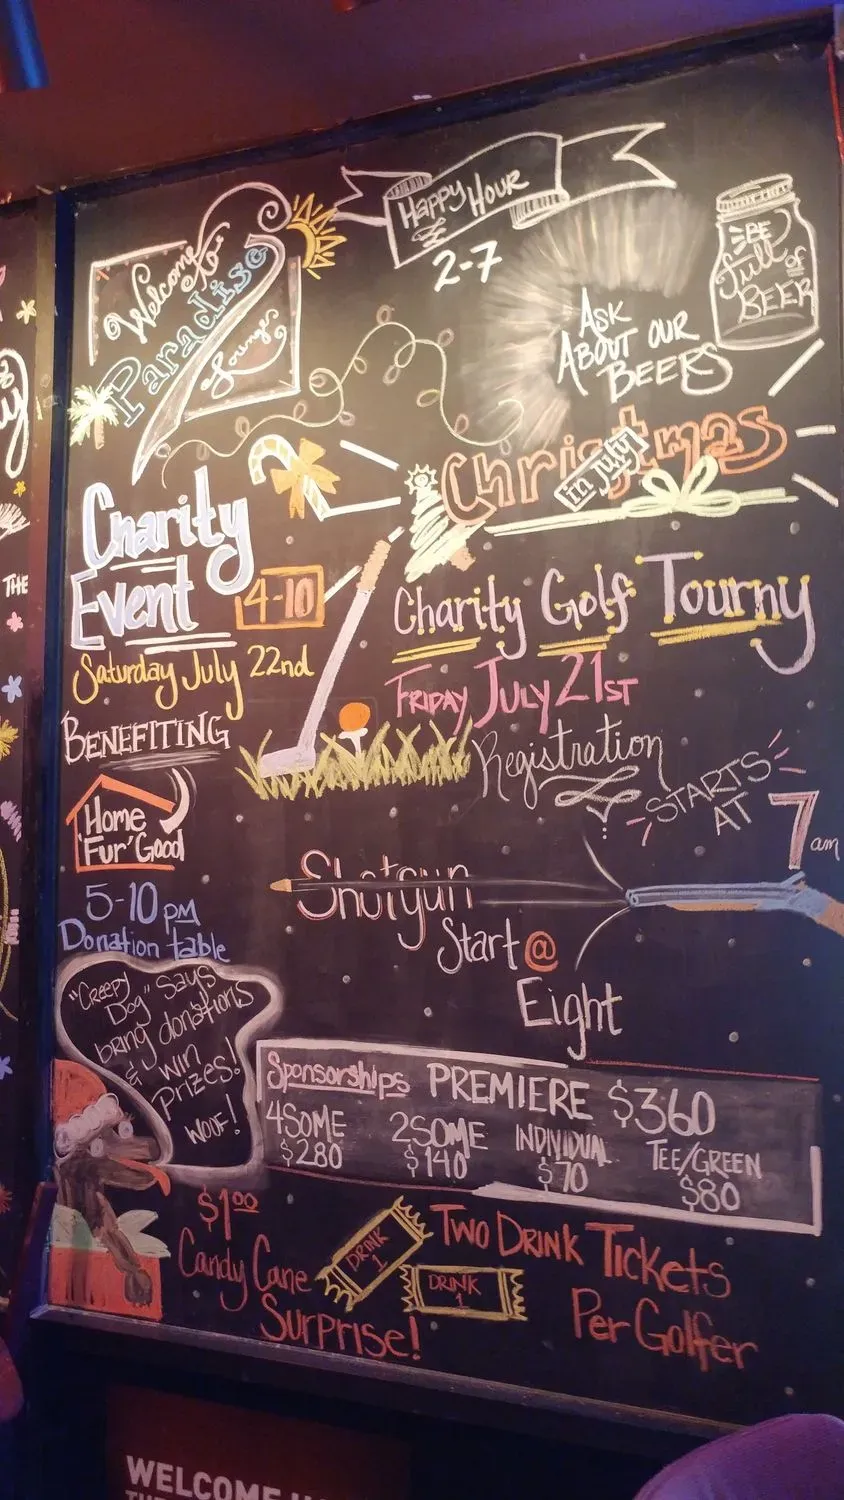 Welcome to
Paradise
Lounge
Happy Hour
2-7
BE
full OF
BEER
ASK
ABOUT OUR
BEERS
Christmas
in July
Charity
Event 4-10
Saturday July 22nd
BENEFITING
Home
'Fur' Good
5-10 pm
Donation table
"Creepy
Dog" says
bring donations
& win
prizes!
WOOF!
Charity Golf Tourny
FRIDAY JULY 21ST
Registration
STARTS
AT 7am
Shotgun
Start @
Eight
Sponsorships PREMIERE $360
4SOME 2SOME INDIVIDUAL TEE/GREEN
$280 $140 $70 $80
$1.00
Candy Cane
Surprise!
DRINK
1
DRINK
1
Two Drink Tickets
Per Golfer
THE
WELCOME